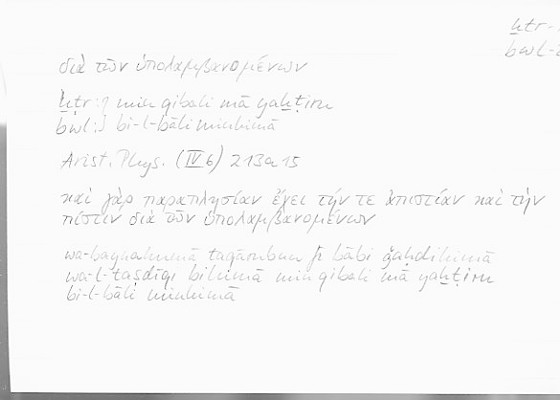 ḫṭr-
bwl-
διὰ τῶν ὑπολαμβανομένων
ḫṭr:] min qibali mā yaḫṭiru
bwl:] bi-l-bāli minhimā
Arist. Phys. (IV 6) 213a15
καὶ γὰρ παραπλησίαν ἔχει τήν τε ἀπιστίαν καὶ τὴν
πίστιν διὰ τῶν ὑπολαμβανομένων
wa-baynahumā taqārubun fī bābi ǧaḥdihimā
wa-l-taṣdīqi bihimā min qibali mā yaḫṭiru
bi-l-bāli minhimā